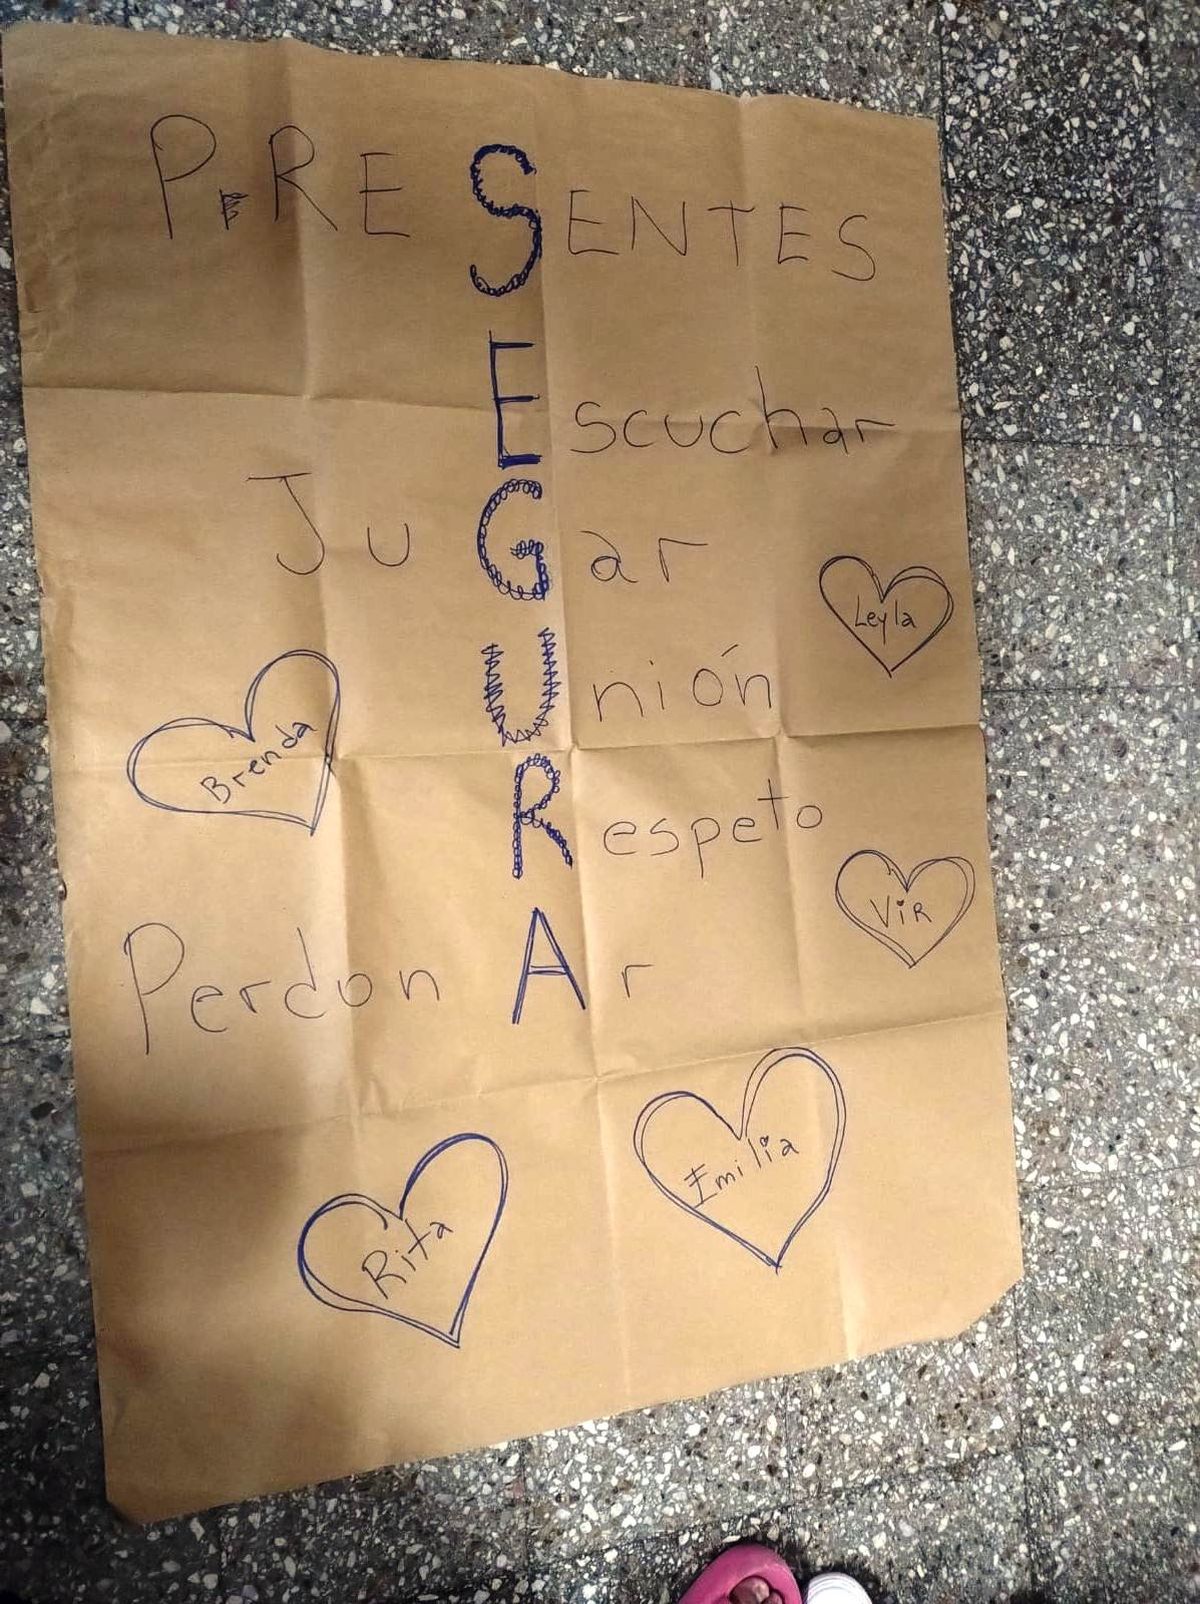 PRESENTES
Escuchar
JuGar
Leyla
Unión
Brenda
Respeto
Vir
PerdonAr
Emilia
Rita